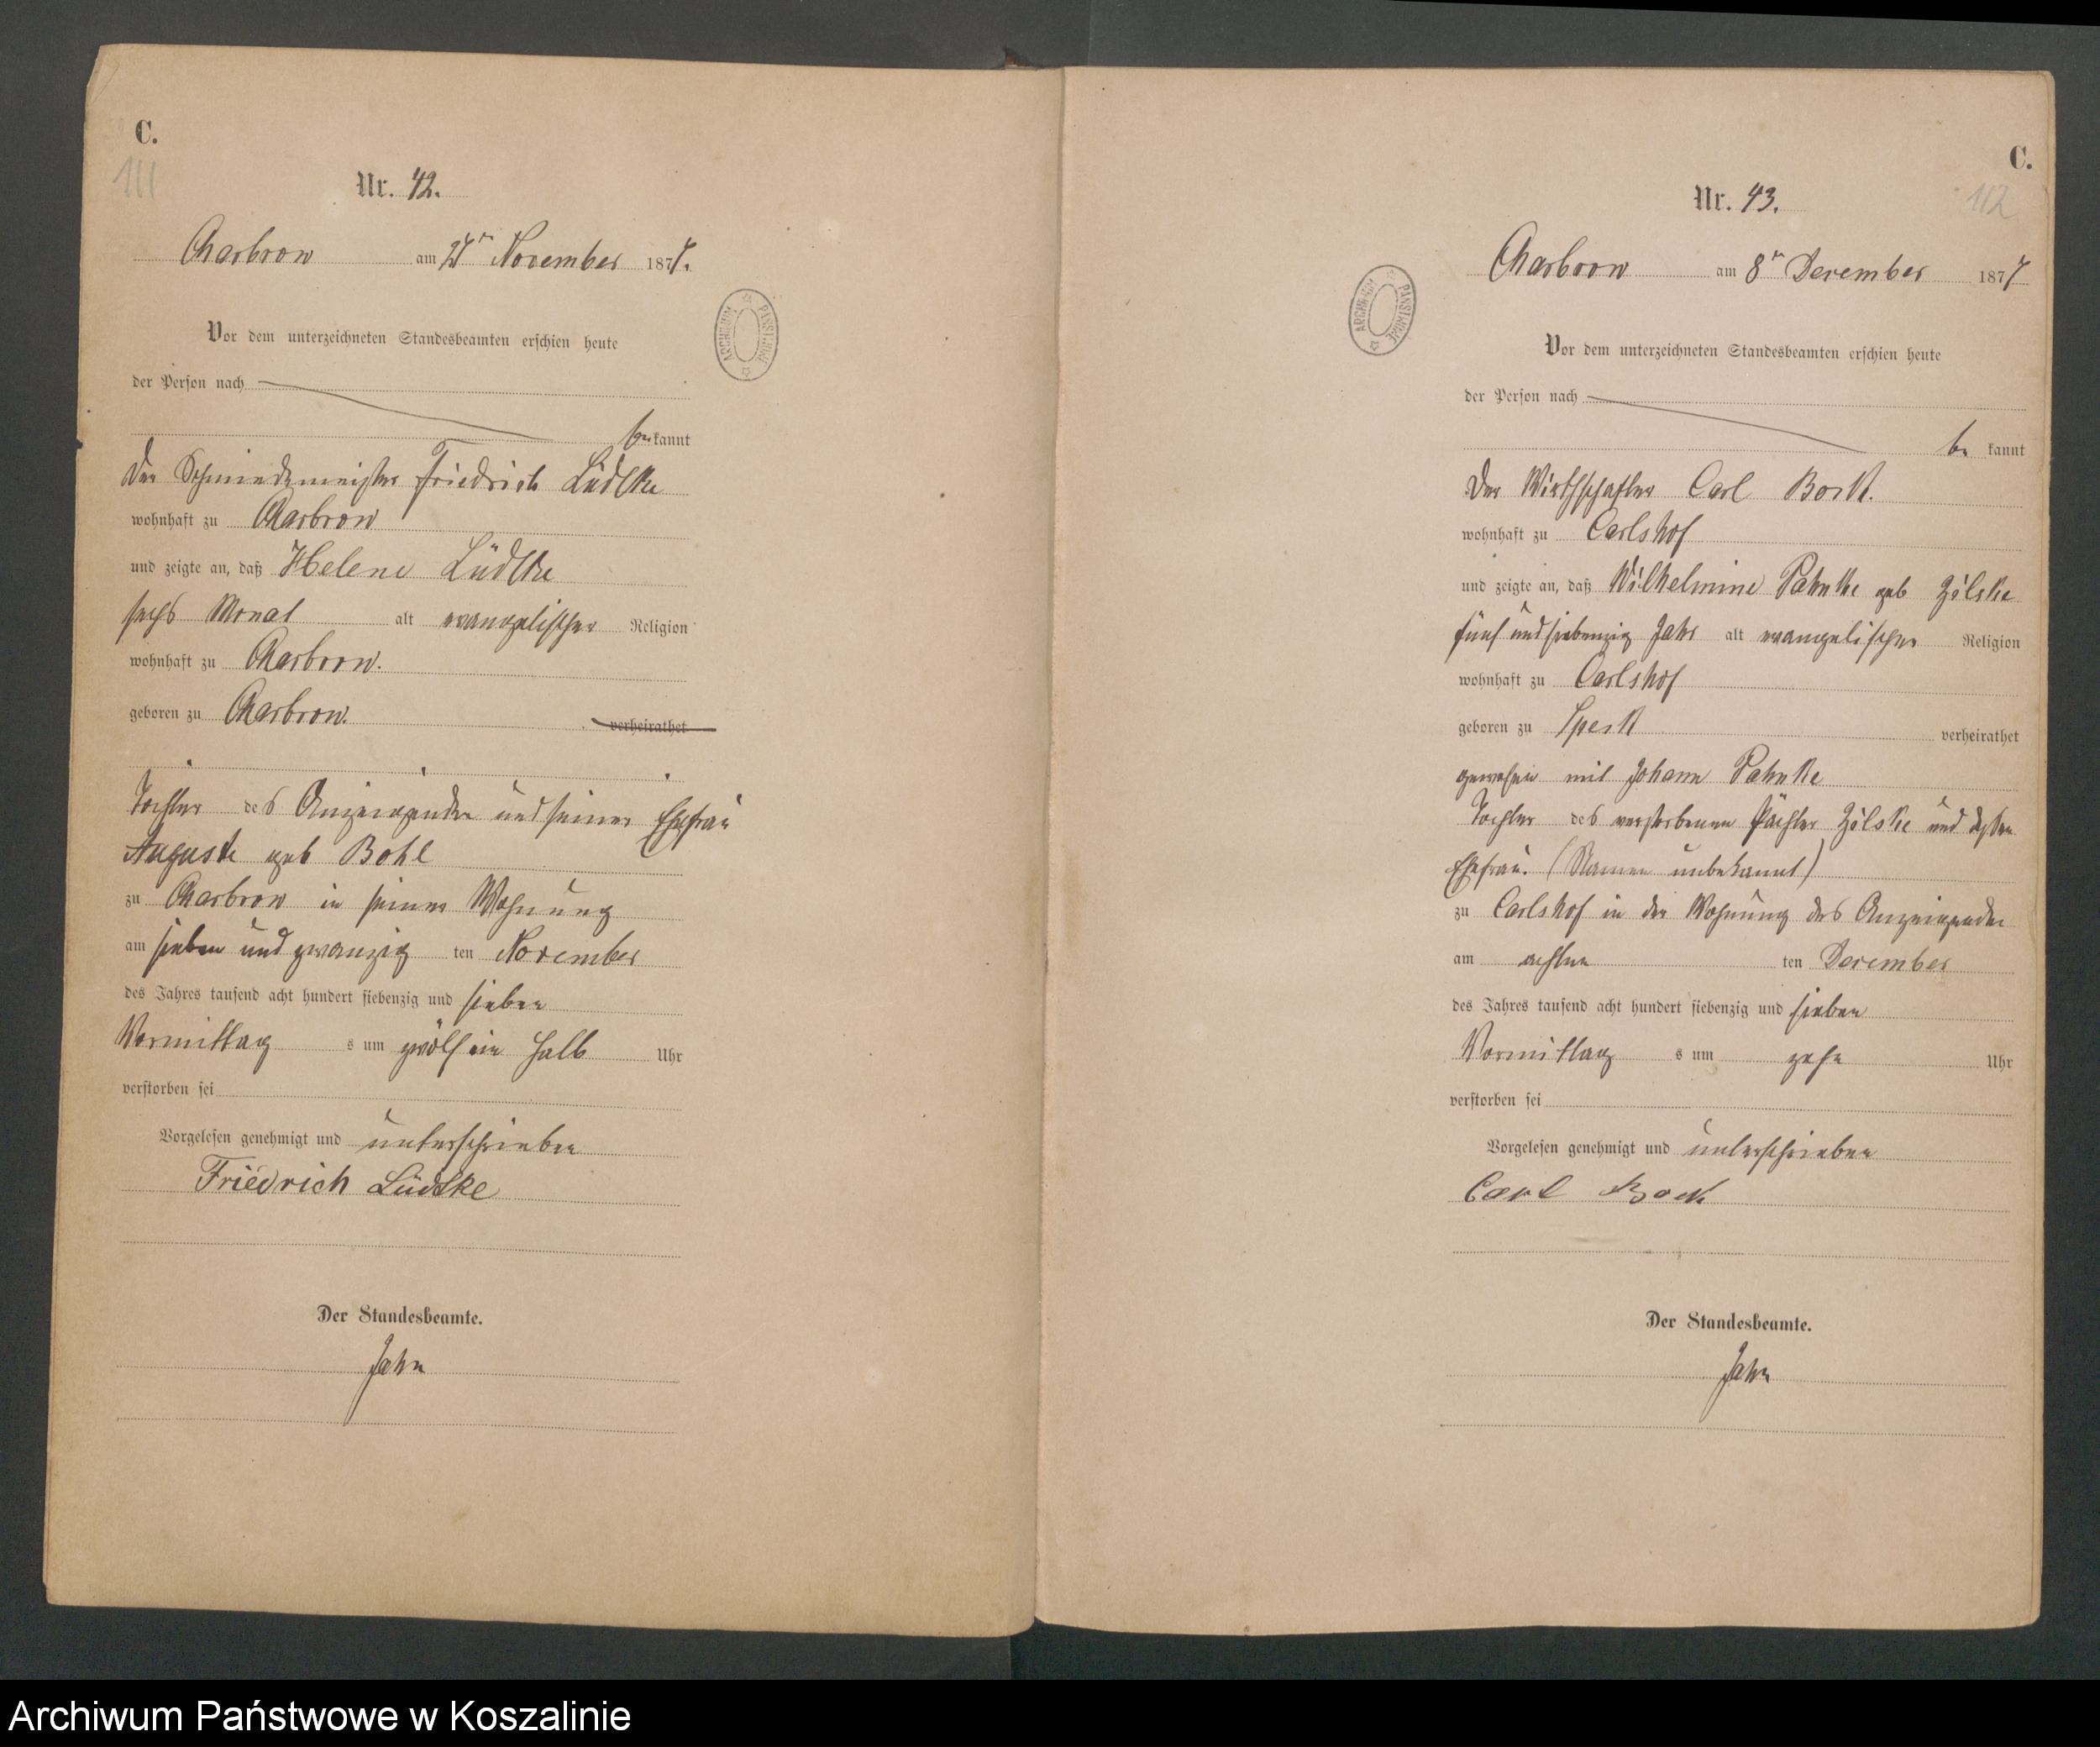 C.
111
Nr. 42.
Charbrow am 27ten November 1877.
Vor dem unterzeichneten Standesbeamten erschien heute
der Person nach
bekannt
Der Schmiedemeister Friedrich Lüdtke
wohnhaft zu Charbrow
und zeigte an, daß Helene Lüdtke
sechs Monat alt evangelischer Religion
wohnhaft zu Charbrow.
geboren zu Charbrow. verheirathet
Tochter des Anzeigenden und seiner Ehefrau
Auguste geb Bohl
zu Charbrow in seiner Wohnung
am sieben und zwanzig ten November
des Jahres tausend acht hundert siebenzig und sieben
Vormittag s um zwölf ein halb Uhr
verstorben sei
Vorgelesen genehmigt und unterschrieben
Friedrich Lüdtke
Der Standesbeamte.
Jahn
ARCHIWUM PAŃSTWOWE
C.
112
Nr. 43.
Charbrow am 8ten December 1877
Vor dem unterzeichneten Standesbeamten erschien heute
der Person nach
be kannt
Der Wirthschafter Carl Bock.
wohnhaft zu Carlshof
und zeigte an, daß Wilhelmine Pahnke geb Zölske
fünf und siebenzig Jahr alt evangelischer Religion
wohnhaft zu Carlshof
geboren zu Speck verheirathet
gewesen mit Johann Pahnke
Tochter des verstorbenen Pächter Zölske und dessen
Ehefrau. (Namen unbekannt)
zu Carlshof in der Wohnung des Anzeigenden
am achten ten December
des Jahres tausend acht hundert siebenzig und sieben
Vormittag s um zehn Uhr
verstorben sei
Vorgelesen genehmigt und unterschrieben
Carl Bock
Der Standesbeamte.
Jahn
ARCHIWUM PAŃSTWOWE
Archiwum Państwowe w Koszalinie